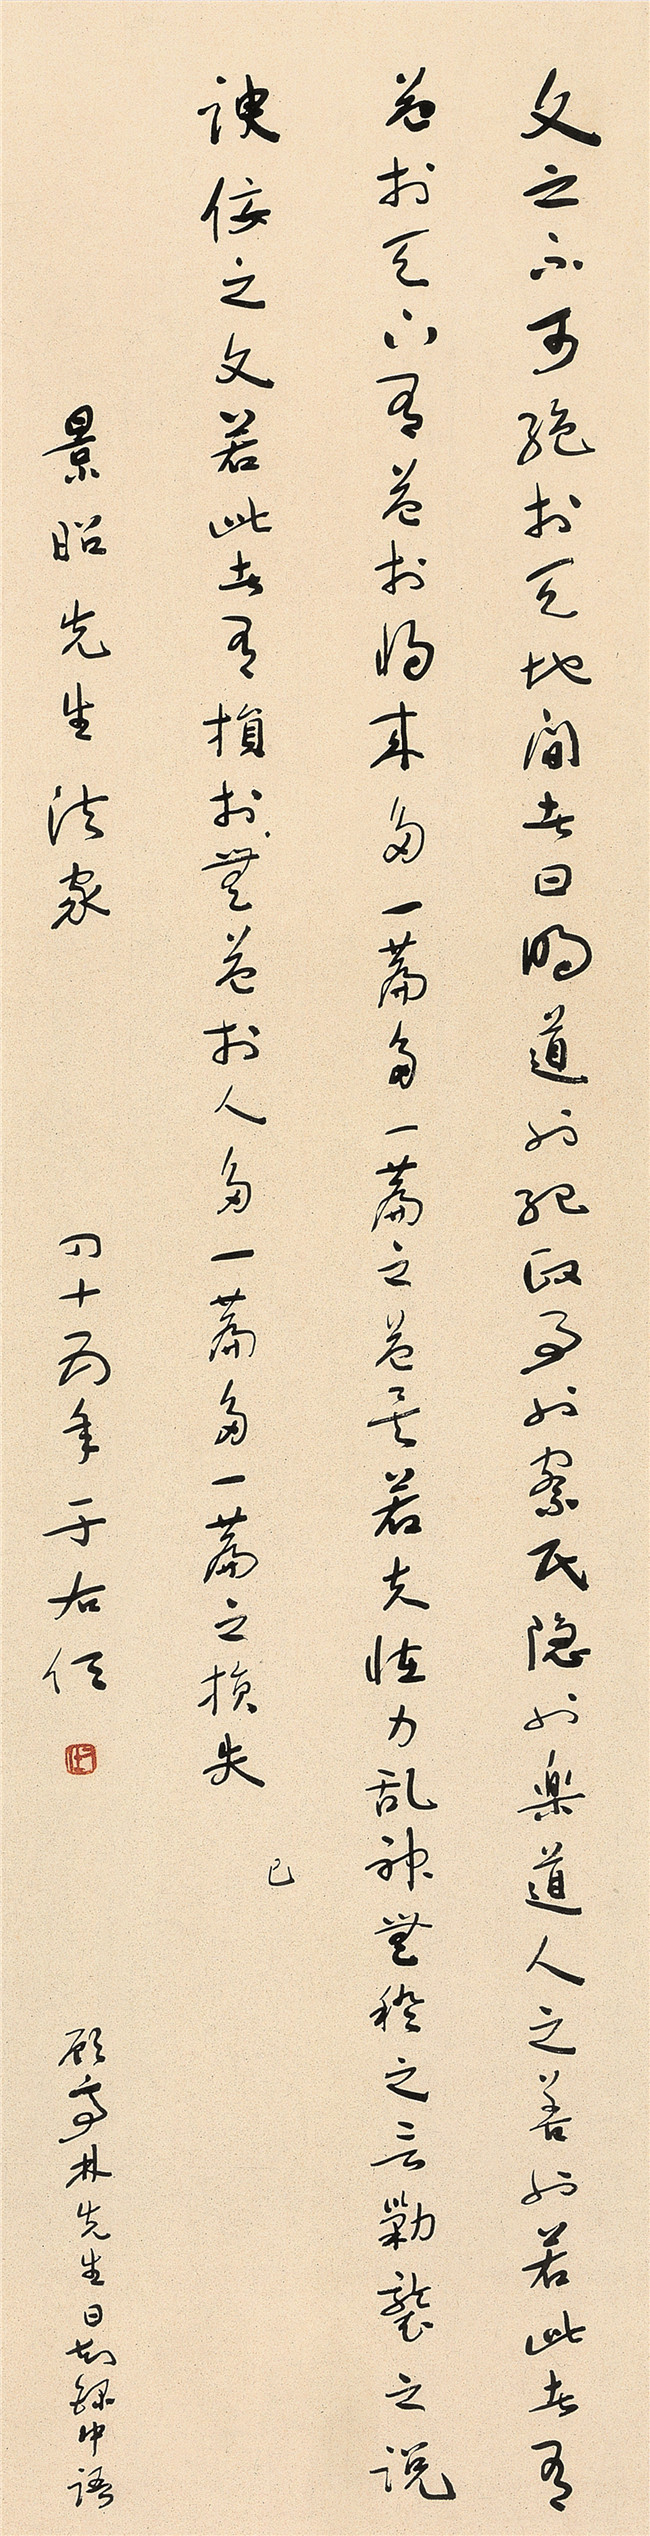 文之不可絕於天地間者曰明道也紀政事也察民隱也樂道人之善也若此者有
益於天下有益於將來多一篇多一篇之益矣若夫怪力亂神無稽之言勦襲之說
諛佞之文若此者有損於無益於人多一篇多一篇之損失
已
景昭先生法家
四十五年于右任
顧亭林先生日知錄中語